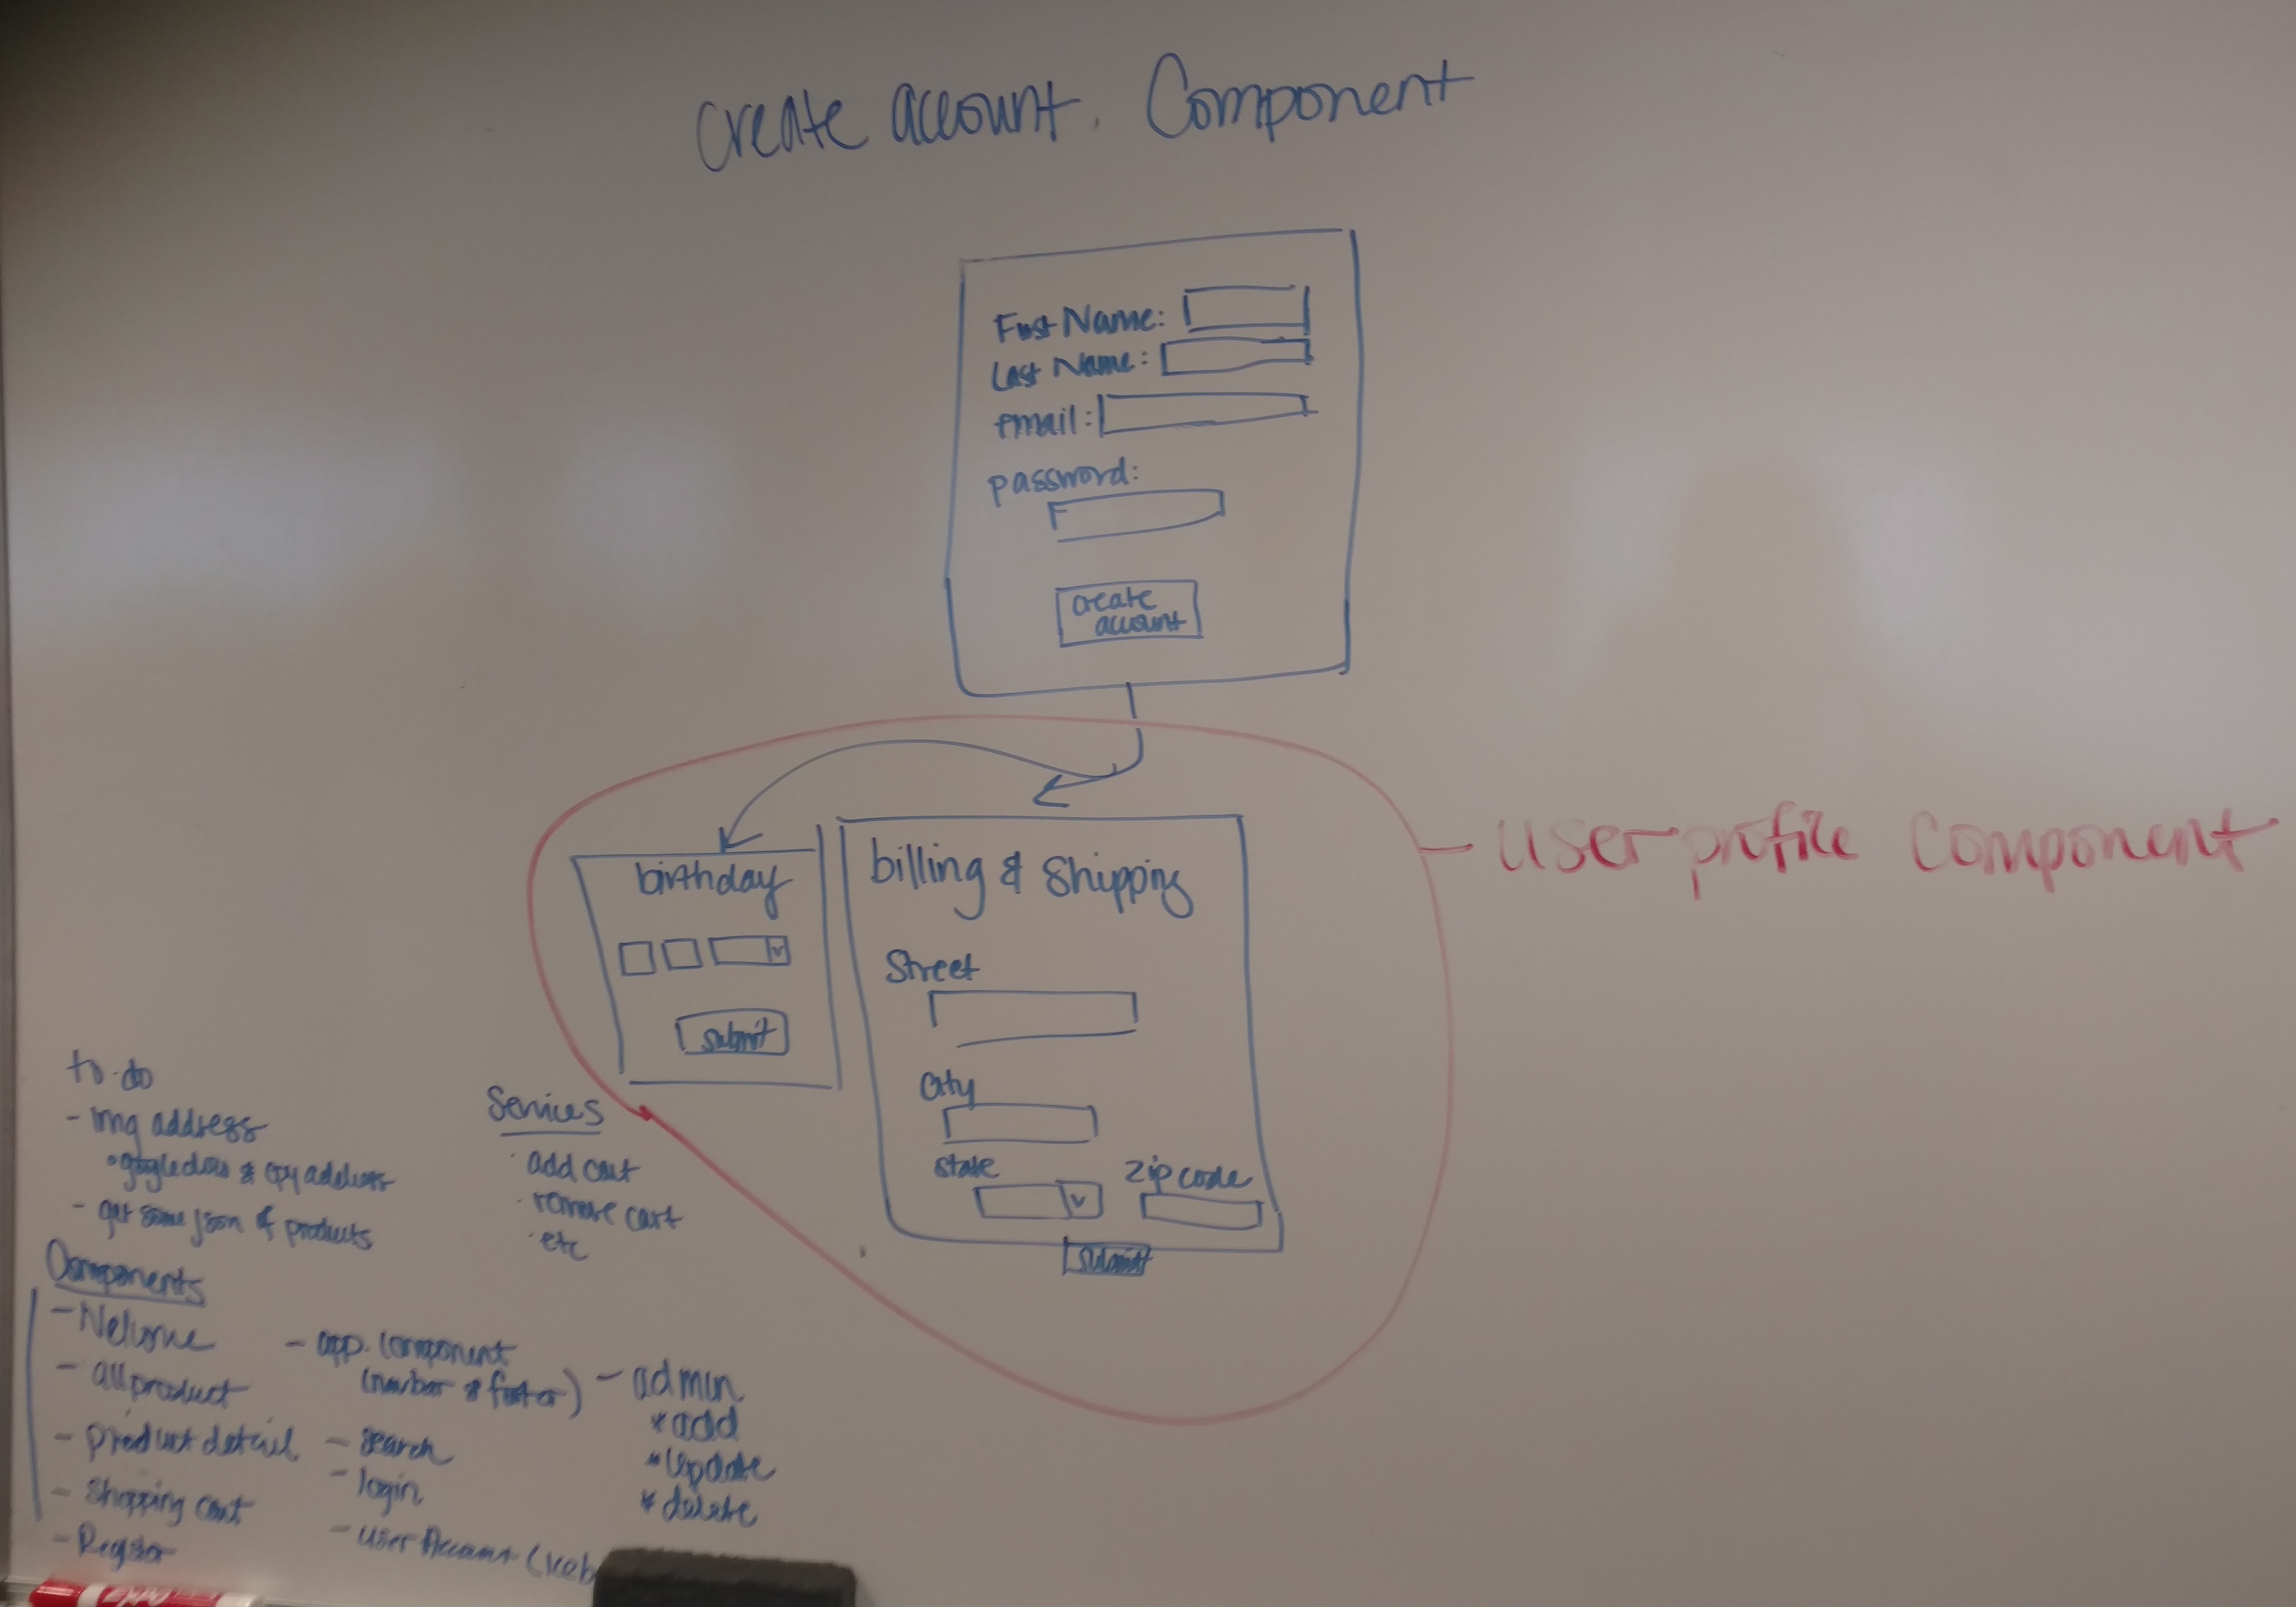 create account. Component
First Name:
Last Name:
email:
password:
create
account
User profile Component
birthday
submit
billing & Shipping
Street
City
state
Zip code
submit
to-do
- img address
• google docs & cpy address
- get some json of products
Services
· add cart
· remove cart
· etc
Components
- Welcome
- all product
- product detail
- Shopping cart
- Register
- app. component
(navbar & footer)
- search
- login
- User Account
- admin
* add
* Update
* delete
EXPO